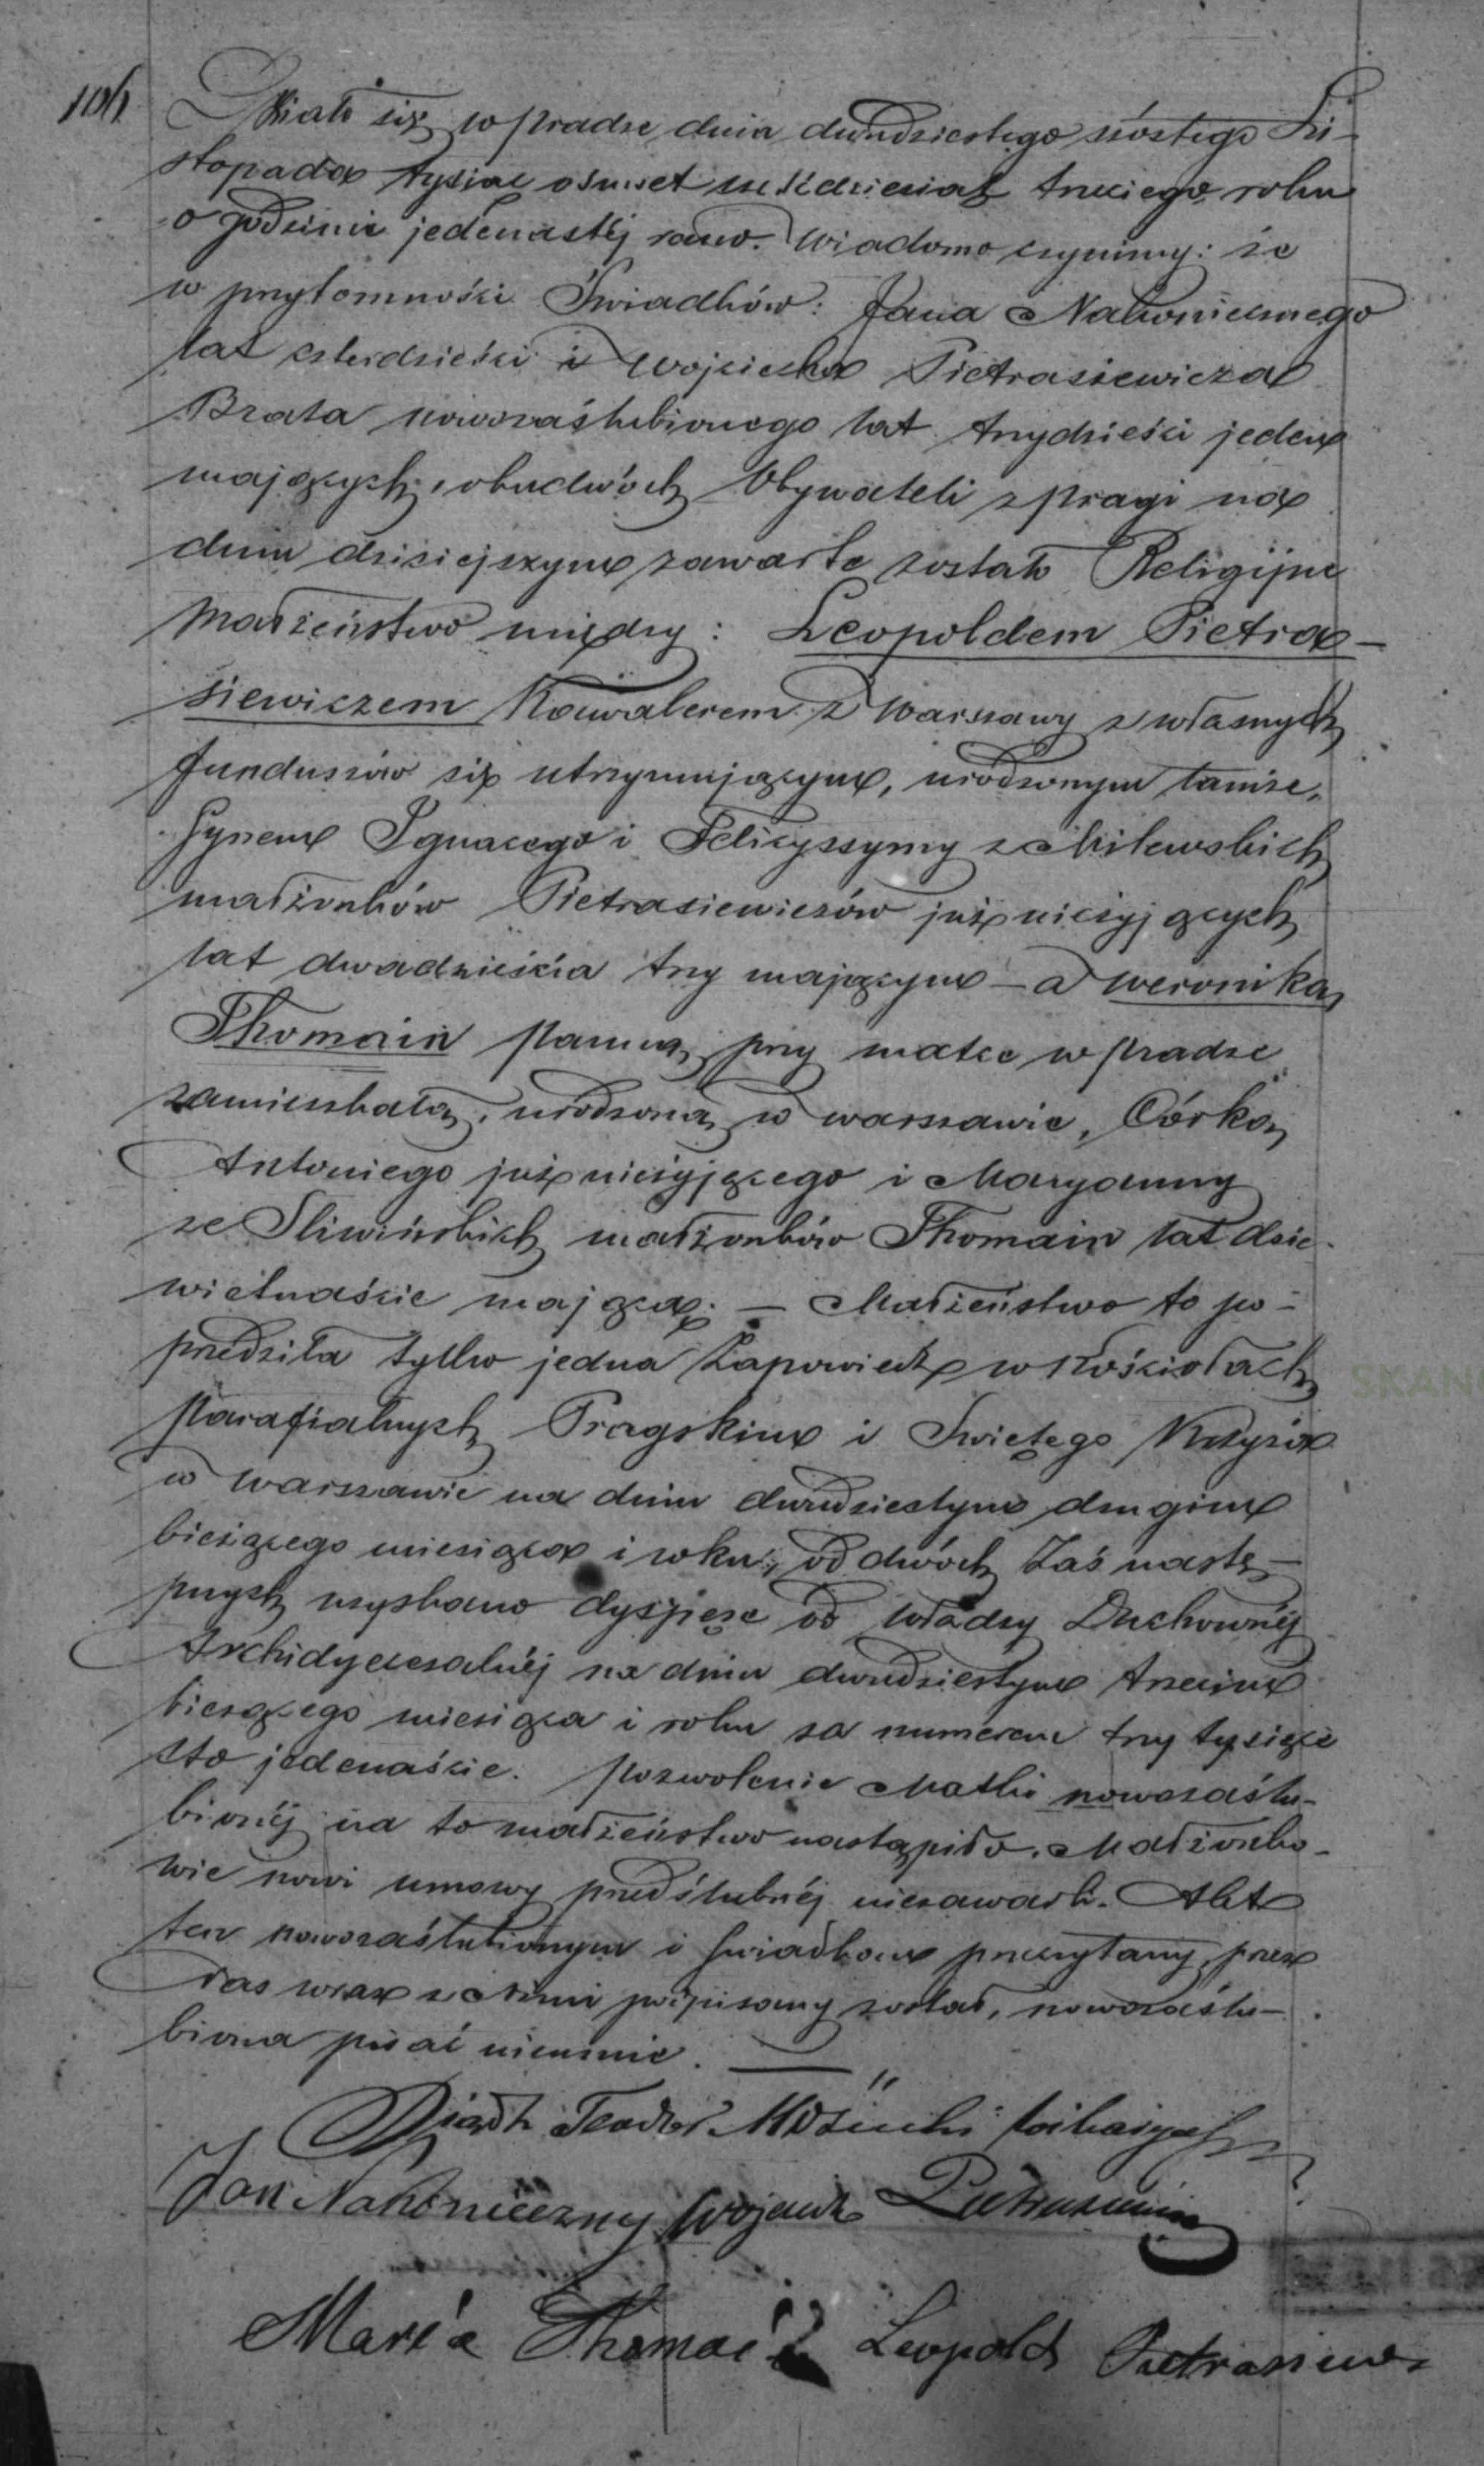 106
Działo się w Pradze dnia dwudziestego szóstego Li-
stopada tysiąc ośmset sześćdziesiąt trzeciego roku
o godzinie jedenastej rano. Wiadomo czynimy: że
w przytomności Świadków: Jana Nakoniecznego
lat czterdzieści i Wojciecha Pietrasiewicza
Brata nowozaślubionego lat trzydzieści jeden
mających, obudwóch Obywateli z Pragi na
dniu dzisiejszym zawarte zostało Religijne
Małżeństwo między: Leopoldem Pietra-
siewiczem Kawalerem z Warszawy z własnych
funduszów się utrzymującym, urodzonym tamże,
Synem Ignacego i Felicyssymy z Milewskich
małżonków Pietrasiewiczów już nieżyjących
lat dwadzieścia trzy mającym – a Weroniką
Thomain Panną, przy matce w Pradze
zamieszkałą, urodzoną w Warszawie, Córką
Antoniego już nieżyjącego i Maryanny
ze Śliwińskich małżonków Thomain lat dzie-
więtnaście mającą. – Małżeństwo to po-
przedziła tylko jedna Zapowiedź w Kościołach
Parafialnych Pragskim i Świętego Krzyża
w Warszawie na dniu dwudziestym drugim
bieżącego miesiąca i roku, od dwóch zaś nastę-
pnych uzyskano dyspięsę od Władzy Duchownéj
Archidyecezalnéj na dniu dwudziestym trzecim
bieżącego miesiąca i roku za numerem trzy tysiące
sto jedenaście. Pozwolenie Matki nowozaślu-
bionéj na to małżeństwo nastąpiło. Małżonko-
wie nowi umowy przedślubnéj niezawarli. Akt
ten nowozaślubionym i świadkom przeczytany, przez
nas wraz z niemi podpisany został, nowozaślu-
biona pisać nieumie.
Xiądz Teodor
Jan Nakonieczny Wojciech Pietrasiewicz
Maria Thomain Leopold Pietrasiewicz
SKAN